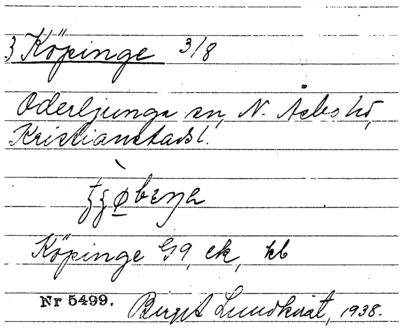 3 Köpinge 3/8
Oderljunga sn, N. Åsbo hd,
Kristianstads l.
Köpinge G9, ek, kb
Nr 5499. Birgit Lundkvist, 1938.